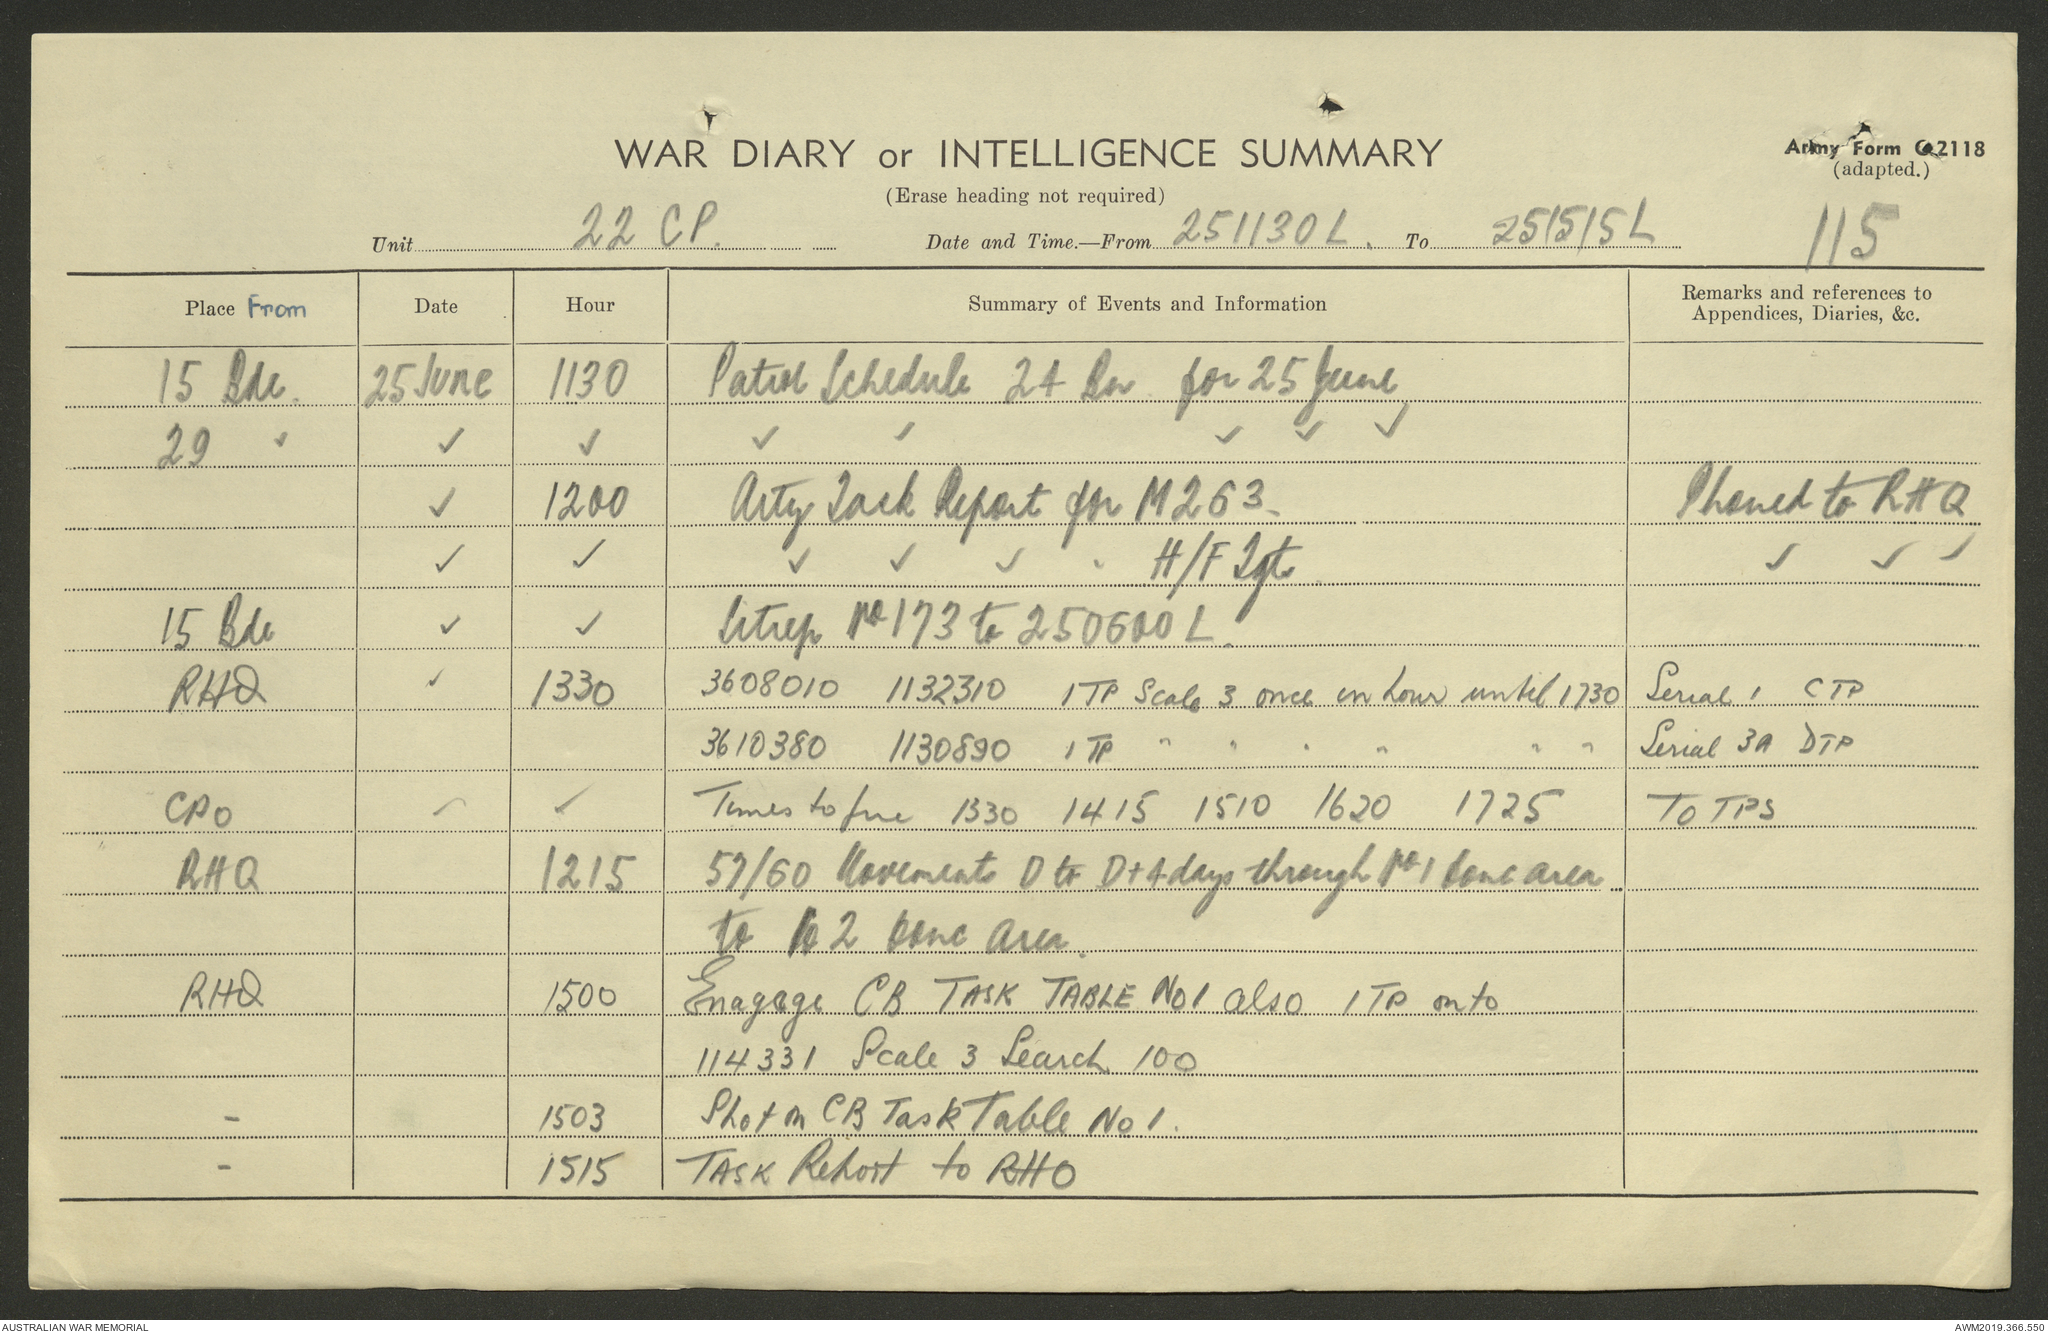 WAR DIARY or INTELLIGENCE SUMMARY
Army Form C 2118
(adapted.)
(Erase heading not required)
Unit 22 CP. Date and Time.—From 251130L. To 251515L 115
Place From Date Hour Summary of Events and Information Remarks and references to Appendices, Diaries, &c.
15 Bde. 25 June 1130 Patrol Schedule 24 Bn. for 25 June
29 ✓ ✓ ✓ ✓ ✓ ✓ ✓ ✓
✓ 1200 Arty Task Report for M263. Phoned to RHQ
✓ ✓ ✓ ✓ ✓ ✓ H/F Tgts. ✓ ✓ ✓
15 Bde ✓ ✓ Sitrep No 173 to 250600L.
RHQ ✓ 1330 3608010 1132310 1 TP Scale 3 once in hour until 1730 Serial 1 CTP
3610380 1130890 1 TP " " " " " " Serial 3A DTP
CPO ✓ ✓ Times to fire 1330 1415 1510 1620 1725 To TPS
RHQ 1215 57/60 Movements D to D+4 days through No 1 area
to No 2 area.
RHQ 1500 Enagage CB TASK TABLE No 1 also 1 TP on to
114331 Scale 3 Search 100
- 1503 Shot on CB Task Table No 1.
- 1515 TASK Report to RHQ
AUSTRALIAN WAR MEMORIAL
AWM2019.366.550